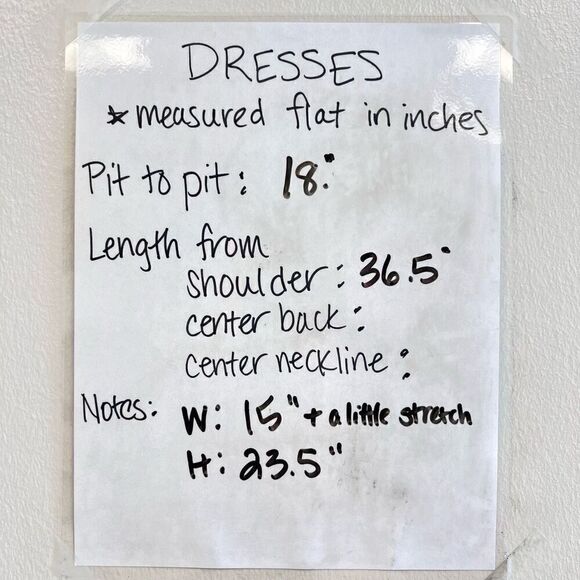 DRESSES
* measured flat in inches
Pit to pit: 18."
Length from
shoulder: 36.5"
center back:
center neckline:
Notes: W: 15" + a little stretch
H: 23.5"